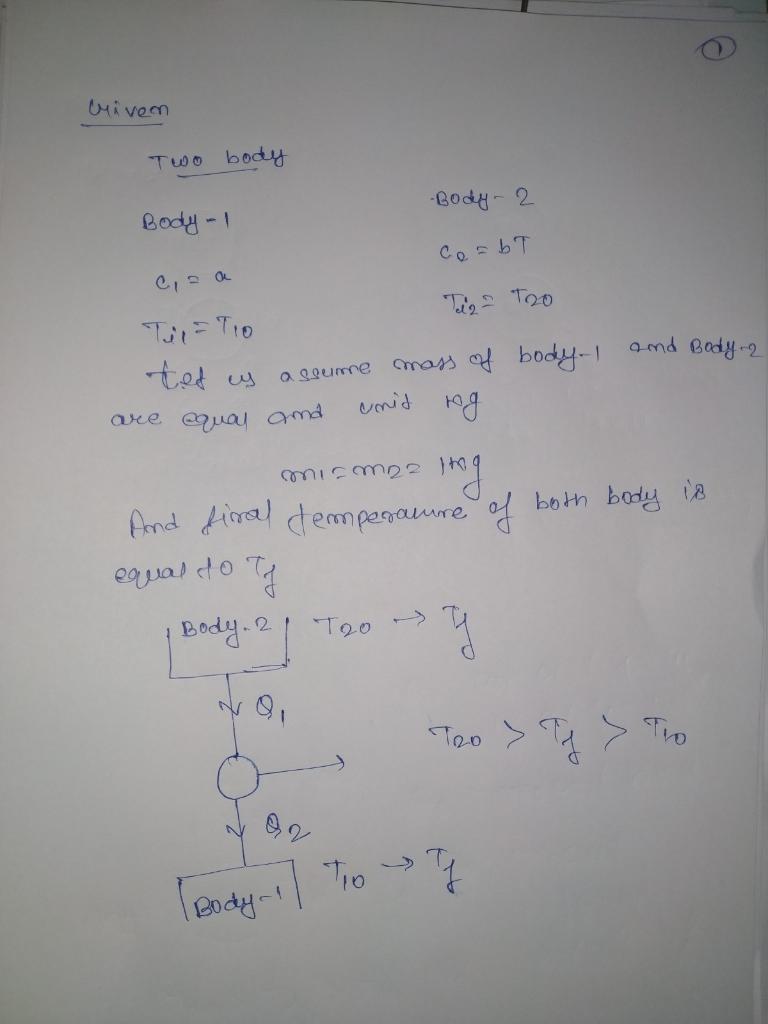 1
Given
Two body
Body-1
Body-2
C₁ = a
C₂ = bT
Ti1 = T10
Ti2 = T20
Let us assume mass of body-1 and Body-2
are equal and unit kg
m1 = m2 = 1kg
And final temperature of both body is
equal to Tf
Body-2 T20 → Tf
Q1
T20 > Tf > T10
Q2
Body-1 T10 → Tf